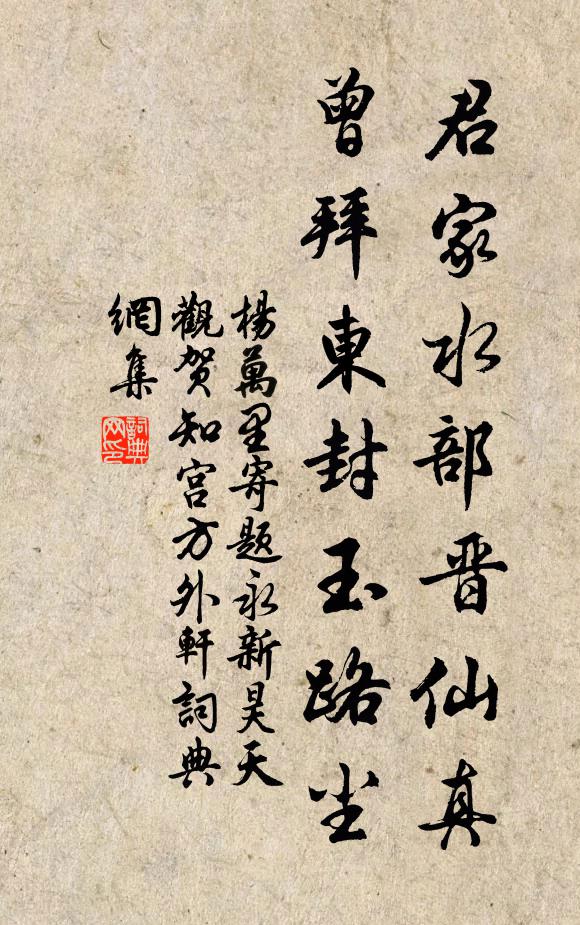 君家水部晋仙真
曾拜東封玉路尘
楊萬里寄题永新昊天
觀贺知宫方外軒詞典
網集
詞典
网印